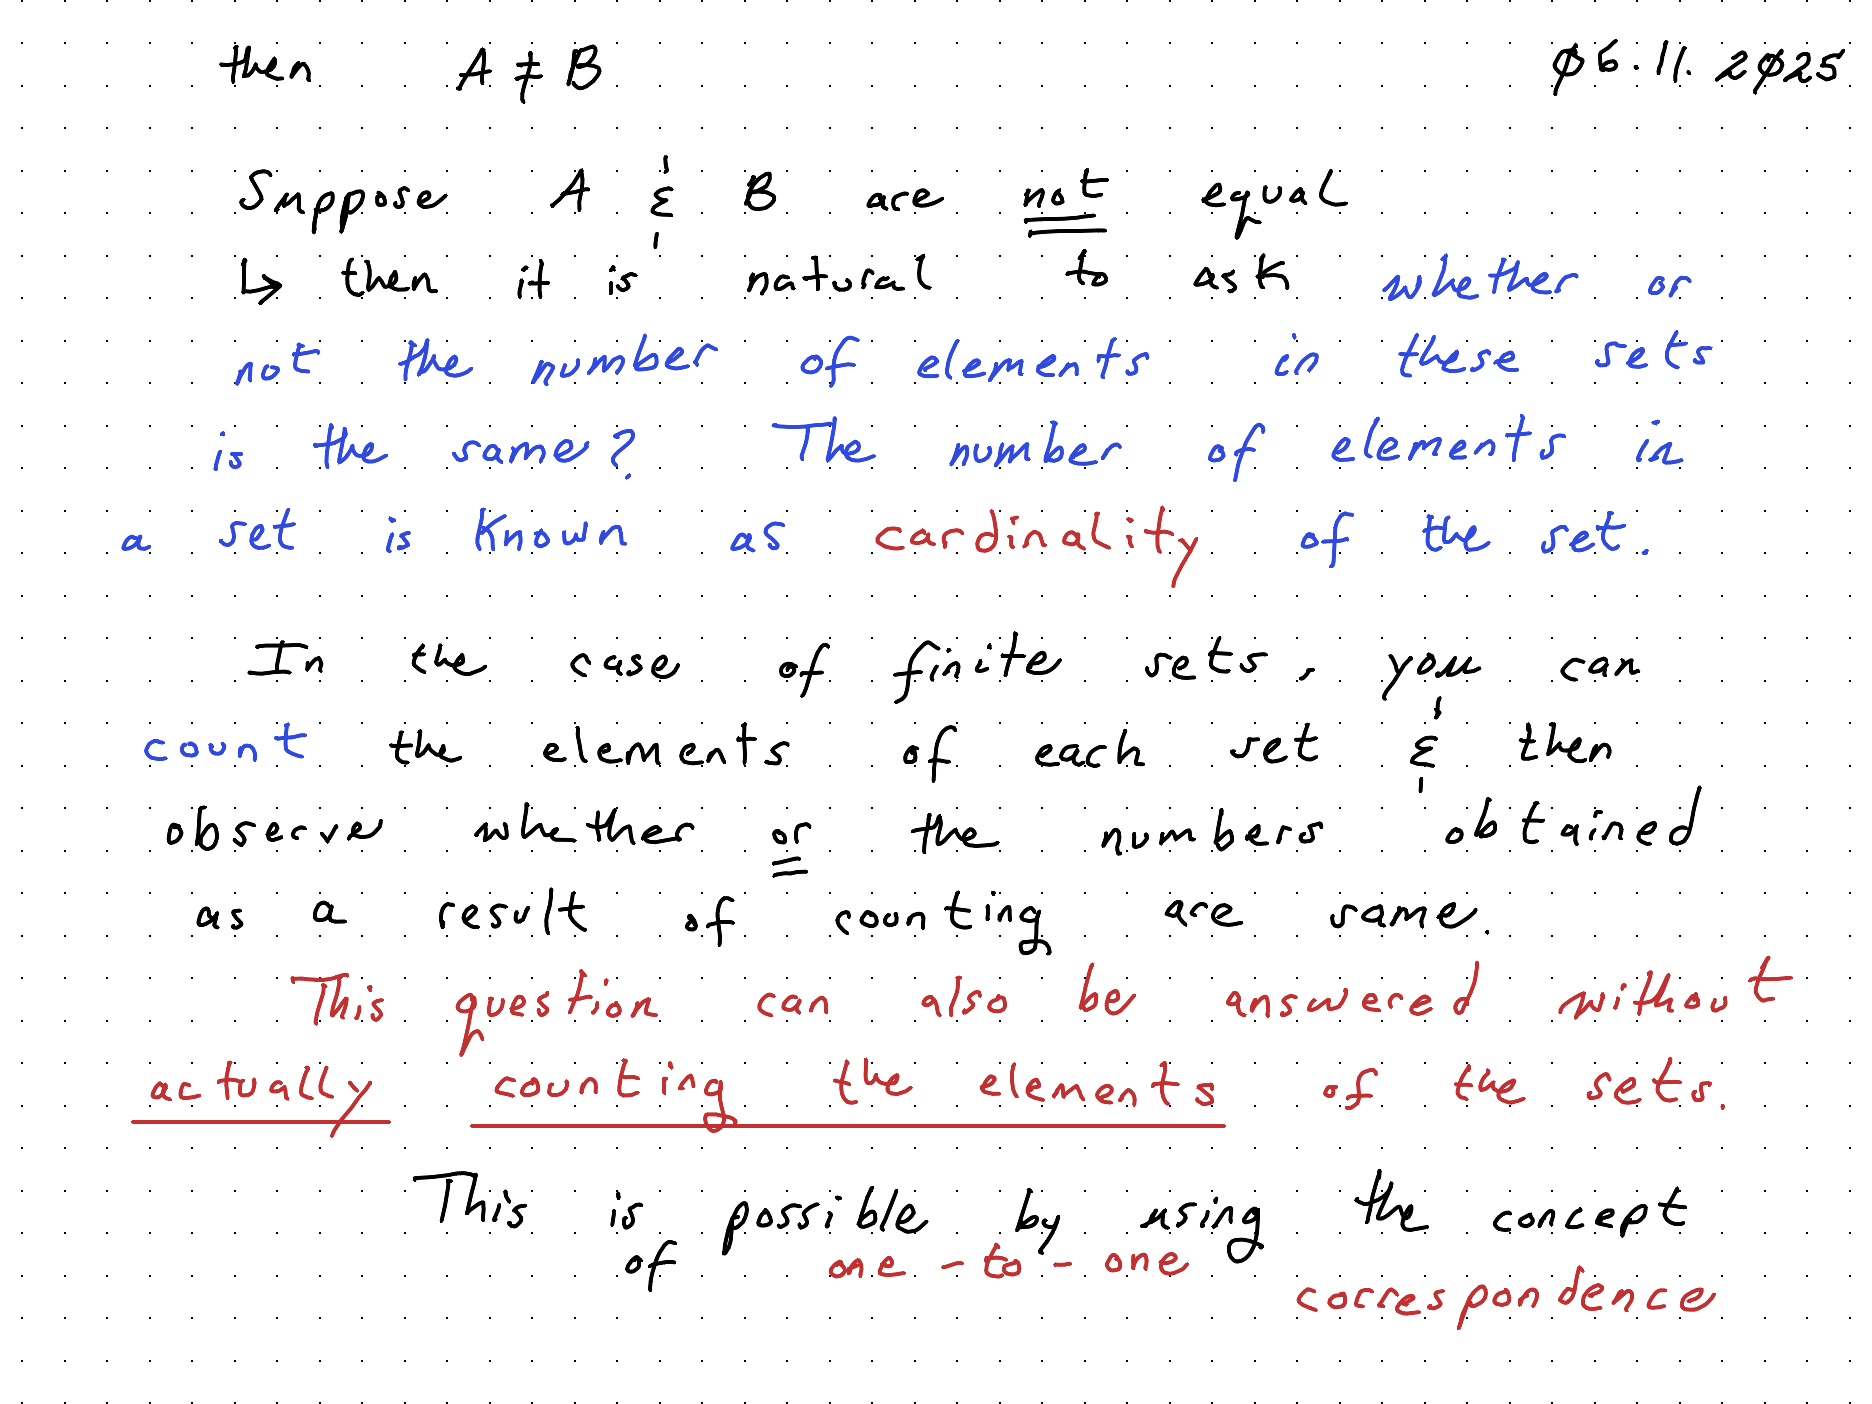 then A ≠ B ø6.11.2ø25
Suppose A & B are not equal
↳ then it is natural to ask whether or
not the number of elements in these sets
is the same? The number of elements in
a set is known as cardinality of the set.
In the case of finite sets, you can
count the elements of each set & then
observe whether or the numbers obtained
as a result of counting are same.
This question can also be answered without
actually counting the elements of the sets.
This is possible by using the concept
of one-to-one
correspondence